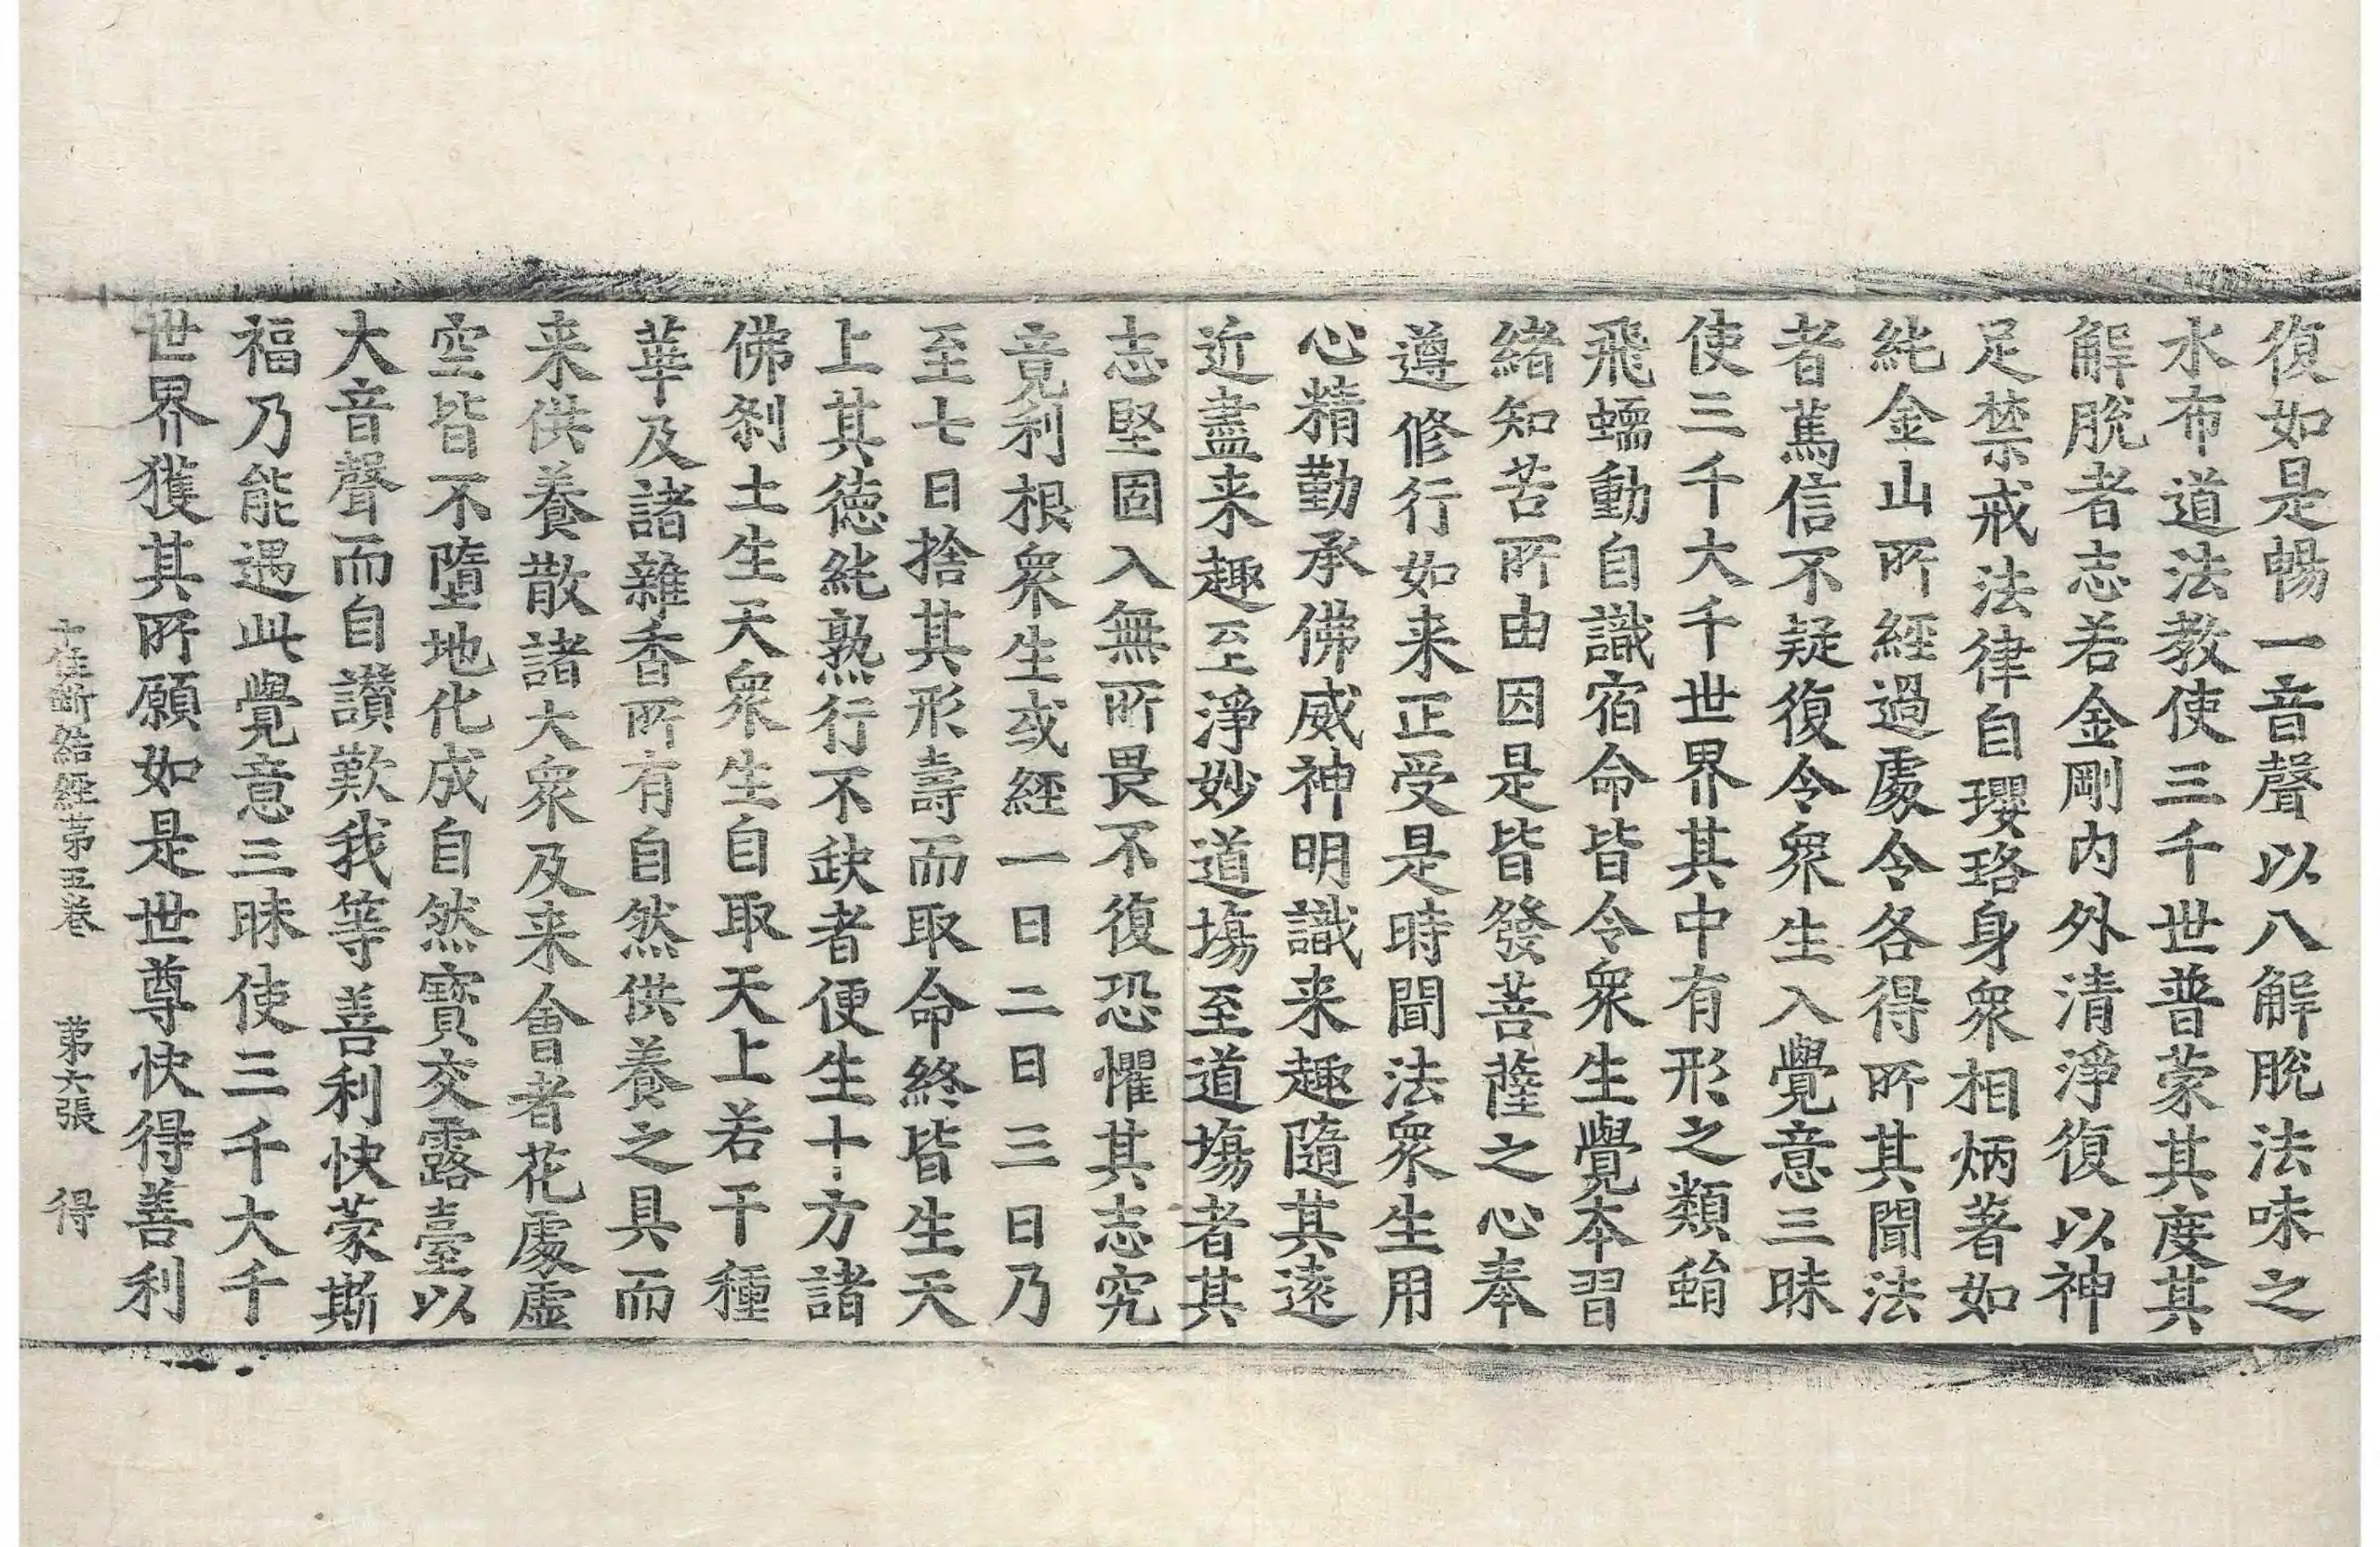 復如是暢一音聲以八解脫法味之
水布道法教使三千世普蒙其度其
解脫者志若金剛內外清淨復以神
足禁戒法律自瓔珞身衆相炳著如
純金山所經過處令各得所其聞法
者萬信不疑復令衆生入覺意三昧
使三千大千世界其中有形之類蜎
飛蠕動自識宿命皆令衆生覺本習
緒知苦所由因是皆發菩薩之心奉
遵修行如来正受是時聞法衆生用
心精勤承佛威神明識来趣隨其遠
近盡来趣至淨妙道塲至道塲者其
志堅固入無所畏不復恐懼其志究
竟利根衆生或經一日二日三日乃
至七日捨其形壽而取命終皆生天
上其德純熟行不缺者便生十方諸
佛刹土生天衆生自取天上若干種
華及諸雜香所有自然供養之具而
来供養散諸大衆及来會者花處虛
空皆不墮地化成自然寶交露臺以
大音聲而自讚歎我等善利快蒙斯
福乃能遇此覺意三昧使三千大千
世界獲其所願如是世尊快得善利
十住斷結經第五卷　第六張　得